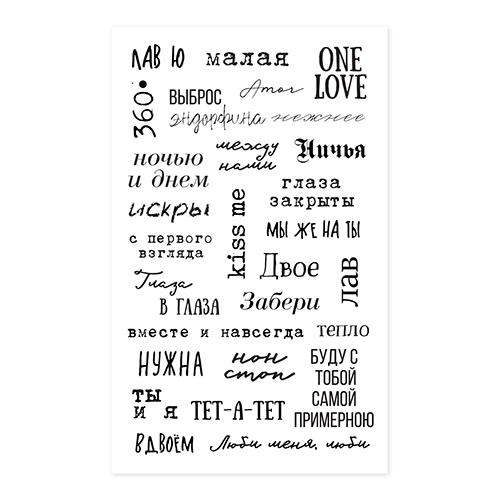 ЛАВ Ю
малая
ONE
LOVE
360°
ВЫБРОС
эндорфина
Amor
нежнее
ночью
и днем
между
нами
Ничья
глаза
закрыты
искры
kiss me
МЫ ЖЕ НА ТЫ
с первого
взгляда
Двое
лав
Глаза
В ГЛАЗА
Забери
вместе и навсегда
тепло
НУЖНА
нон
стоп
БУДУ С
ТОБОЙ
САМОЙ
ПРИМЕРНОЮ
ты
и я
ТЕТ-А-ТЕТ
ВДВОЁМ
Люби меня, люби